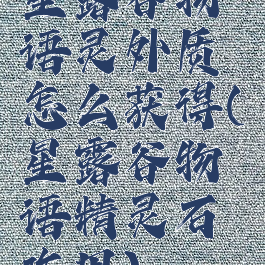 星露谷物
语灵外质
怎么获得(
星露谷物
语精灵石